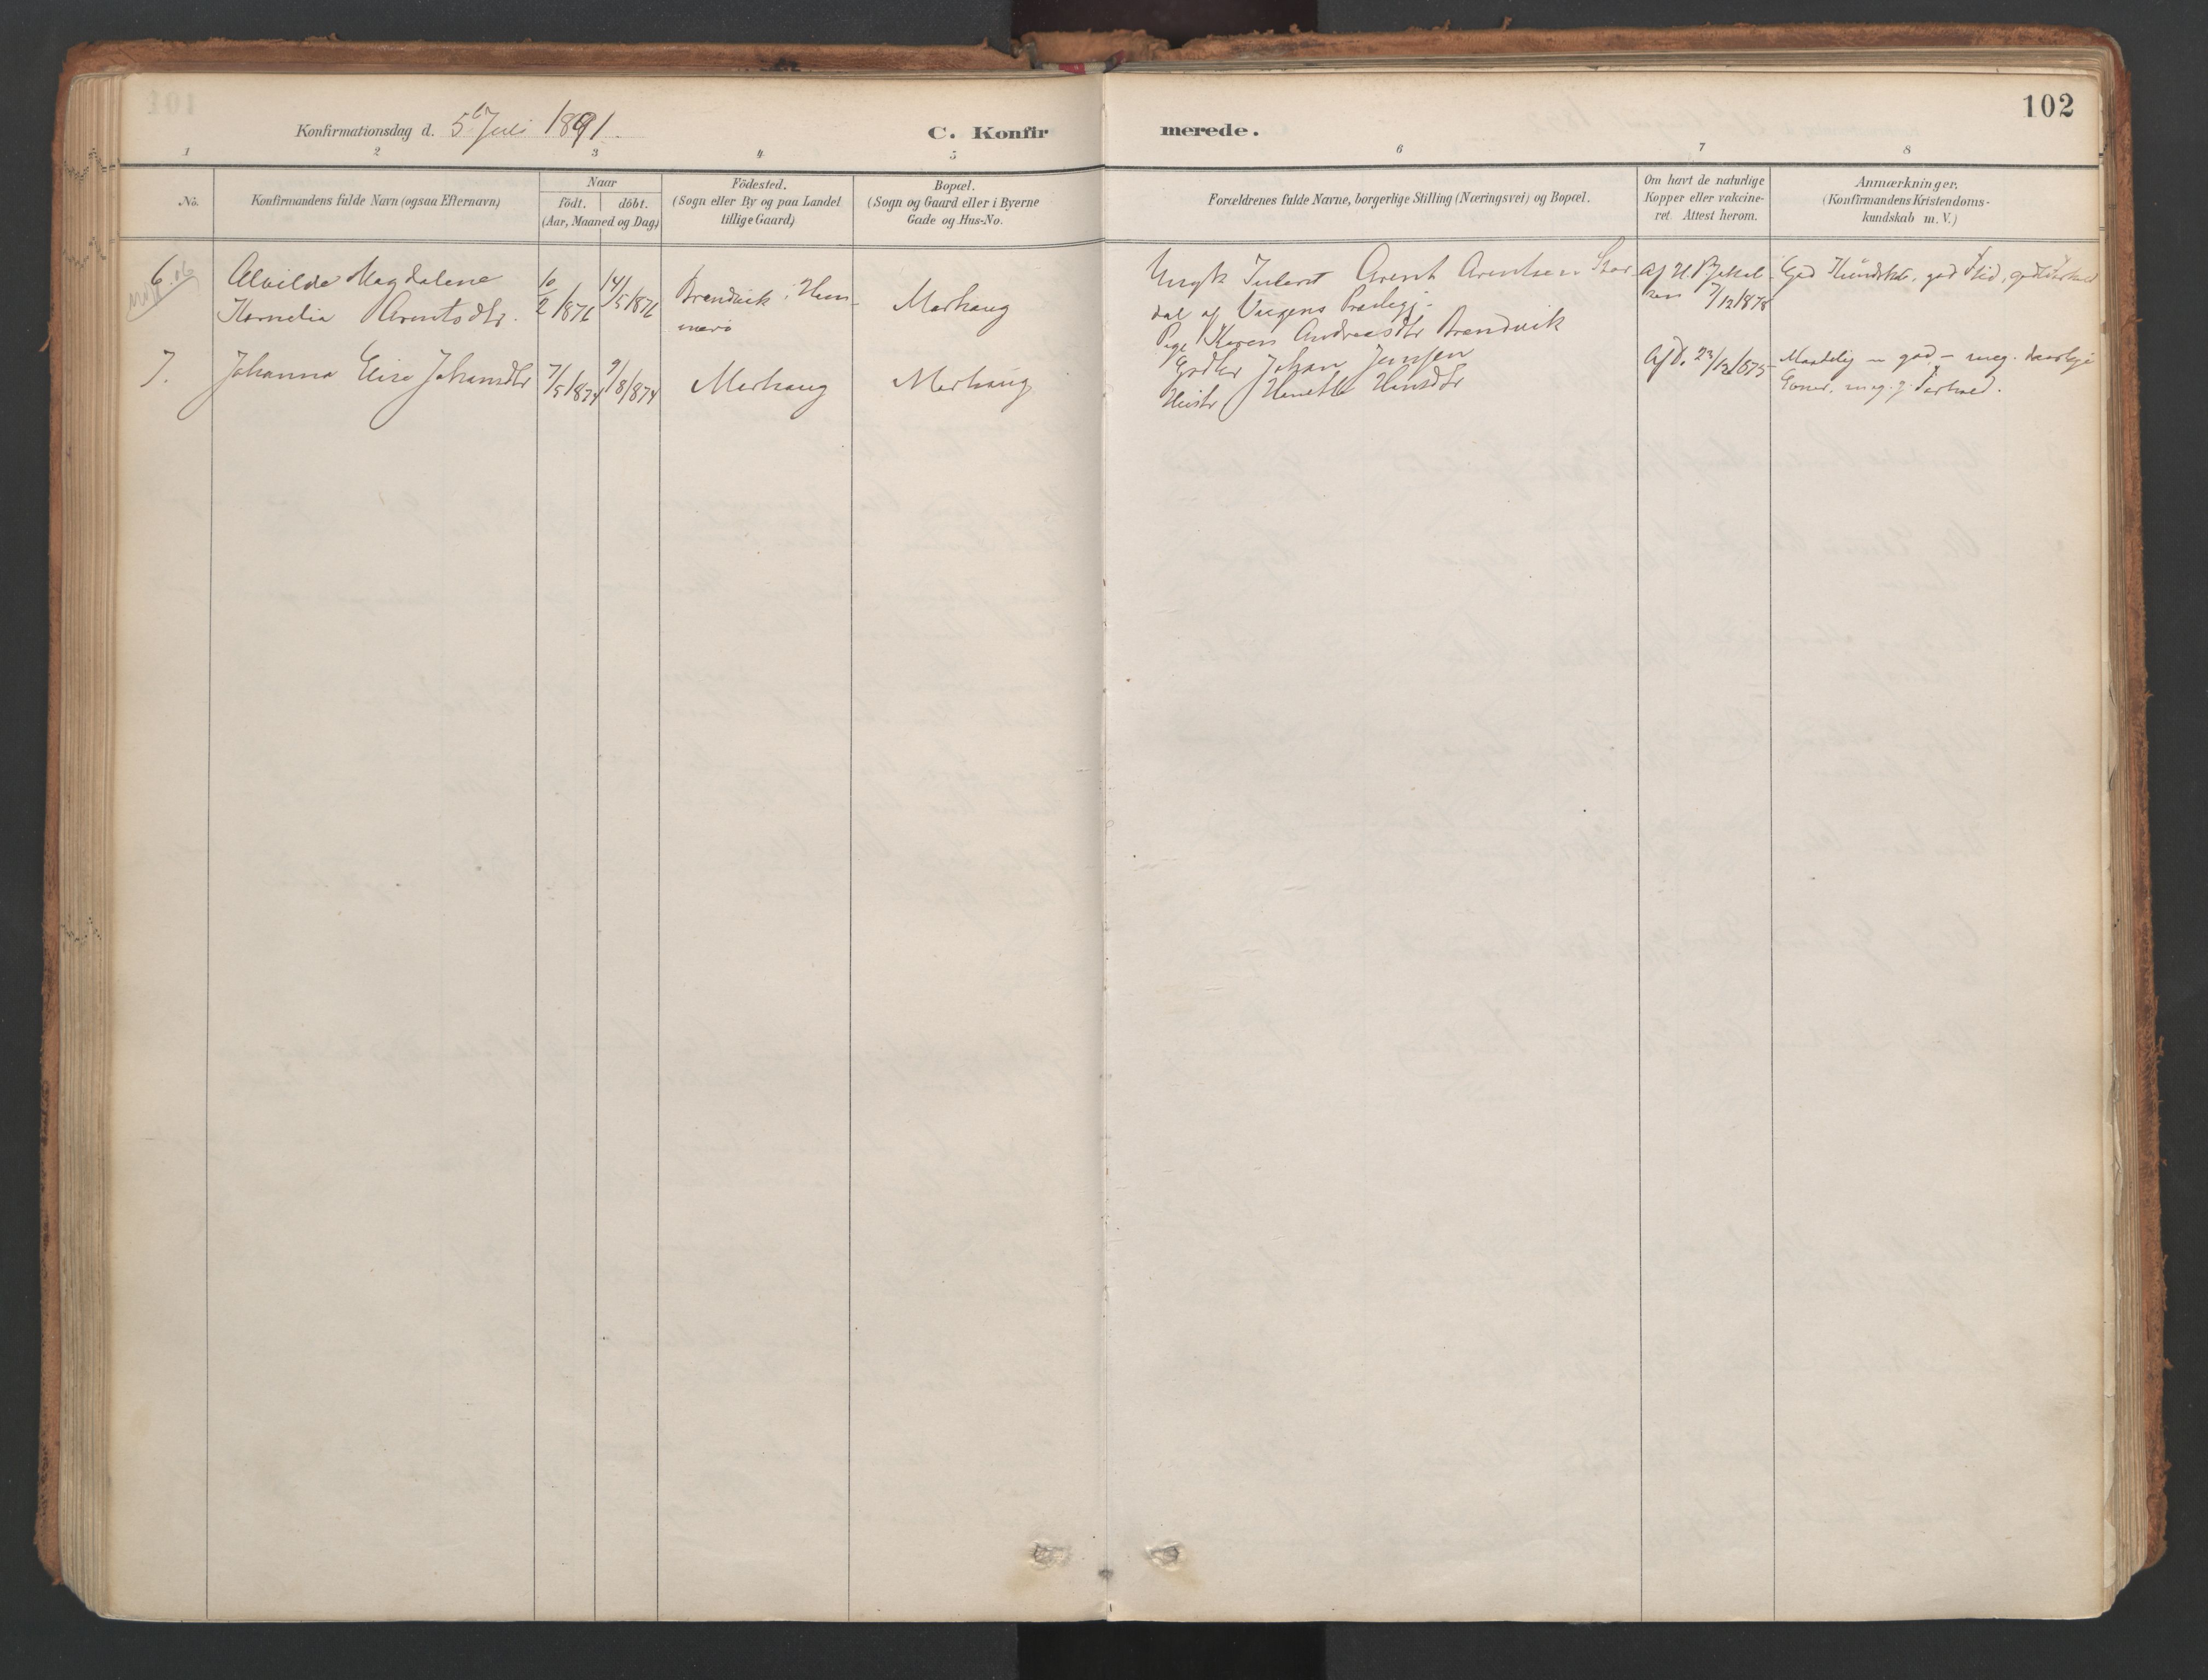 102
Konfirmationsdag d. 5te Juli 1891.
C. Konfirmerede.
1 2 3 4 5 6 7 8
No.
Konfirmandens fulde Navn (ogsaa Efternavn)
Naar
födt. döbt.
(Aar, Maaned og Dag)
Födested.
(Sogn eller By og paa Landet
tillige Gaard)
Bopæl.
(Sogn og Gaard eller i Byerne
Gade og Hus-No.
Forældrenes fulde Navne, borgerlige Stilling (Næringsvei) og Bopæl.
Om havt de naturlige
Kopper eller vakcine-
ret. Attest herom.
Anmærkninger.
(Konfirmandens Kristendoms-
kundskab m. V.)
6.
Alvilde Magdalene
Kornelia Arentsdtr.
10/2 1876
14/5 1876
Brendvik i Ham-
merö
Markaug
Ungk Arent Arentsen Stor-
dal af Præstegj.
Pige Karen Andreasdtr Brendvik
Af H.
7/12 1878
God Kundsk. god Flid, godt Forhold
7.
Johanna Elise Johansdtr
7/5 1874
9/8 1874
Markaug
Markaug
Johan Jensen
Hustr
Af D. 23/12 1875
Maadelig god - meg.
meg. g. Forhold.